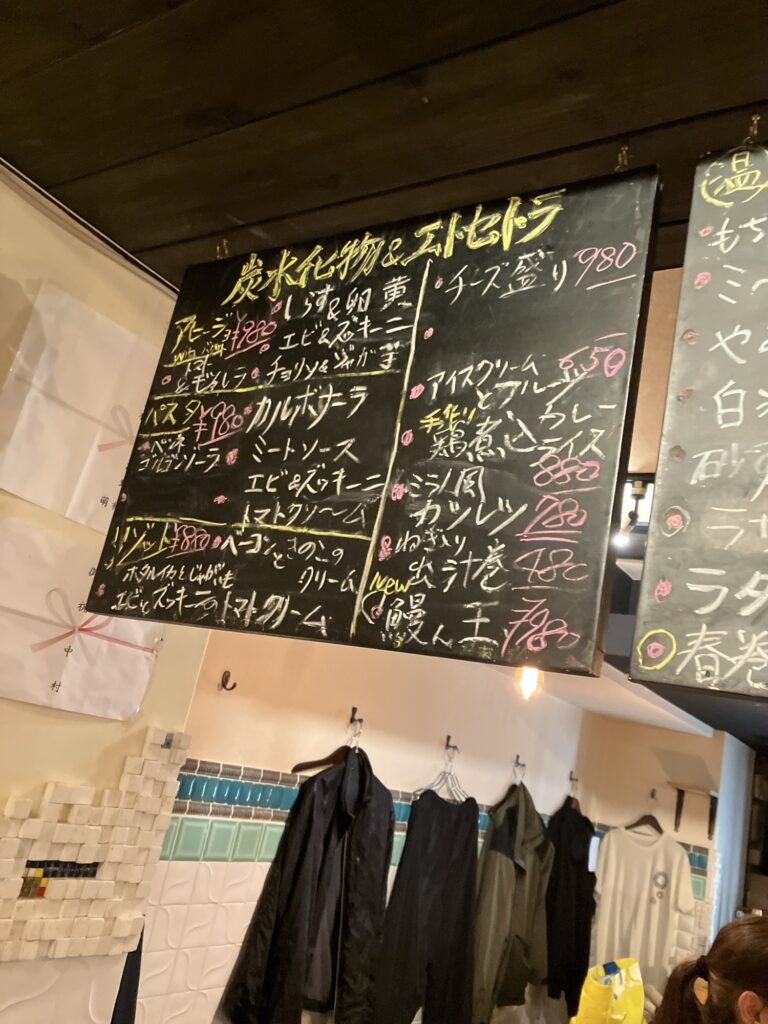 炭水化物&エトセトラ
アヒージョ ¥980
しらす&卵黄
エビ&ズッキーニ
トマト
&モッツァレラ
チョリソ&ジャガ芋
パスタ ¥980
カルボナーラ
ペンネ
ゴルゴンゾーラ
ミートソース
エビ&ズッキーニ
トマトクリーム
リゾット ¥880
ベーコンときのこの
クリーム
ホタルイカとじゃがいも
エビとズッキーニのトマトクリーム
チーズ盛り 980
アイスクリーム
とフルーツ 650
手作り
鶏煮込カレー
ライス
880
ミラノ風
カツレツ 780
ねぎ入り
出汁巻 480
New
鰻ん玉 780
温
もち
ミ
や
白
砂ず
ラザ
ラタ
春巻
中
村